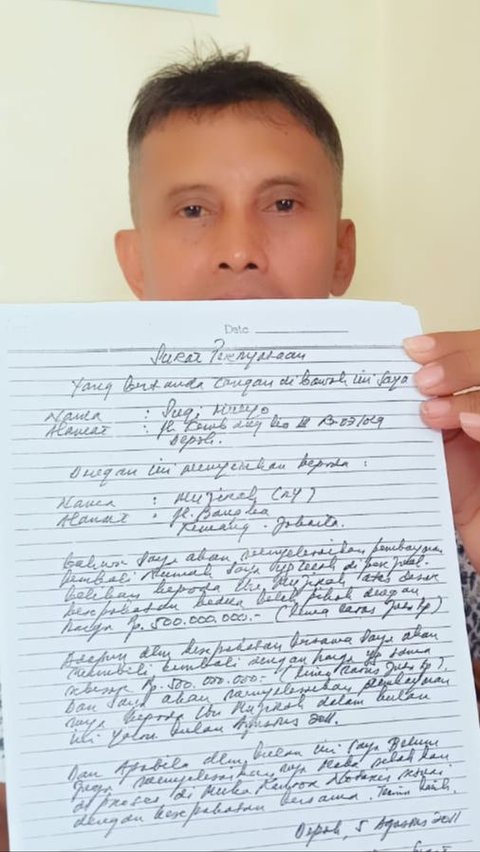 Date
Surat Pernyataan
Yang bertanda tangan di bawah ini saya
Nama :
Alamat : Jl. III Rt 03/019
Depok.
Dengan ini menyerahkan kepada :
Nama : (NY)
Alamat : Jl. Bangka
Kemang - Jakarta.
bahwa saya akan menyelesaikan pembayaran
kembali rumah saya yg telah di per jual
belikan kepada Ibu atas dasar
kesepakatan kedua belah pihak dengan
harga Rp. 500.000.000.- (Lima ratus juta rp)
Adapun dlm kesepakatan bersama saya akan
membeli kembali dengan harga yg sama
sebesar Rp. 500.000.000.- (Lima ratus juta rp).
Dan saya akan menyelesaikan pembayaran
nya kepada Ibu dalam bulan
ini yaitu bulan Agustus 2011.
Dan Apabila dlm bulan ini saya Belum
juga menyelesaikan nya Maka silahkan
di proses di Muka Kantor Notaris sesuai
dengan kesepakatan bersama. Terima kasih.
Depok, 5 Agustus 2011